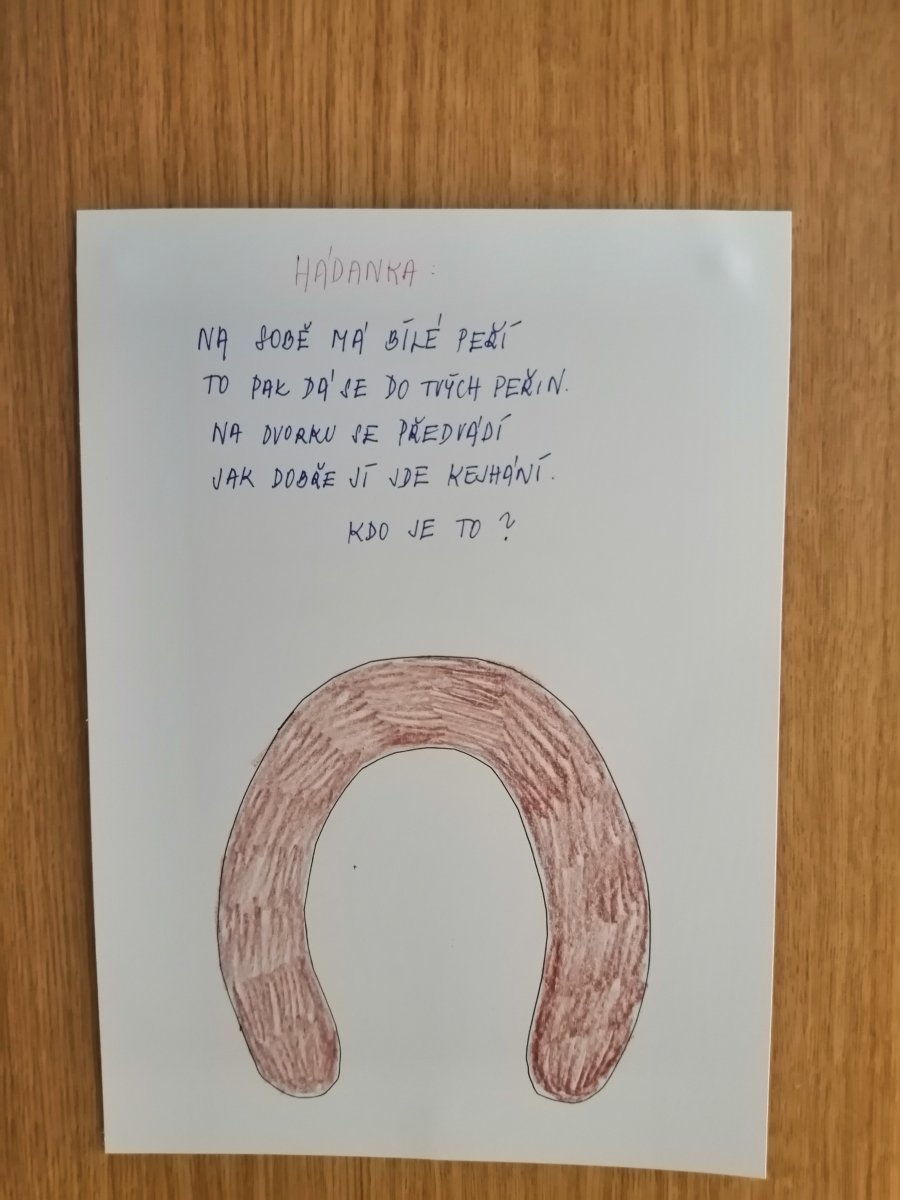 HÁDANKA:
NA SOBĚ MÁ BÍLÉ PEŘÍ
TO PAK DÁ SE DO TVÝCH PEŘIN.
NA DVORKU SE PŘEDVÁDÍ
JAK DOBŘE JÍ JDE KEJHÁNÍ.
KDO JE TO?